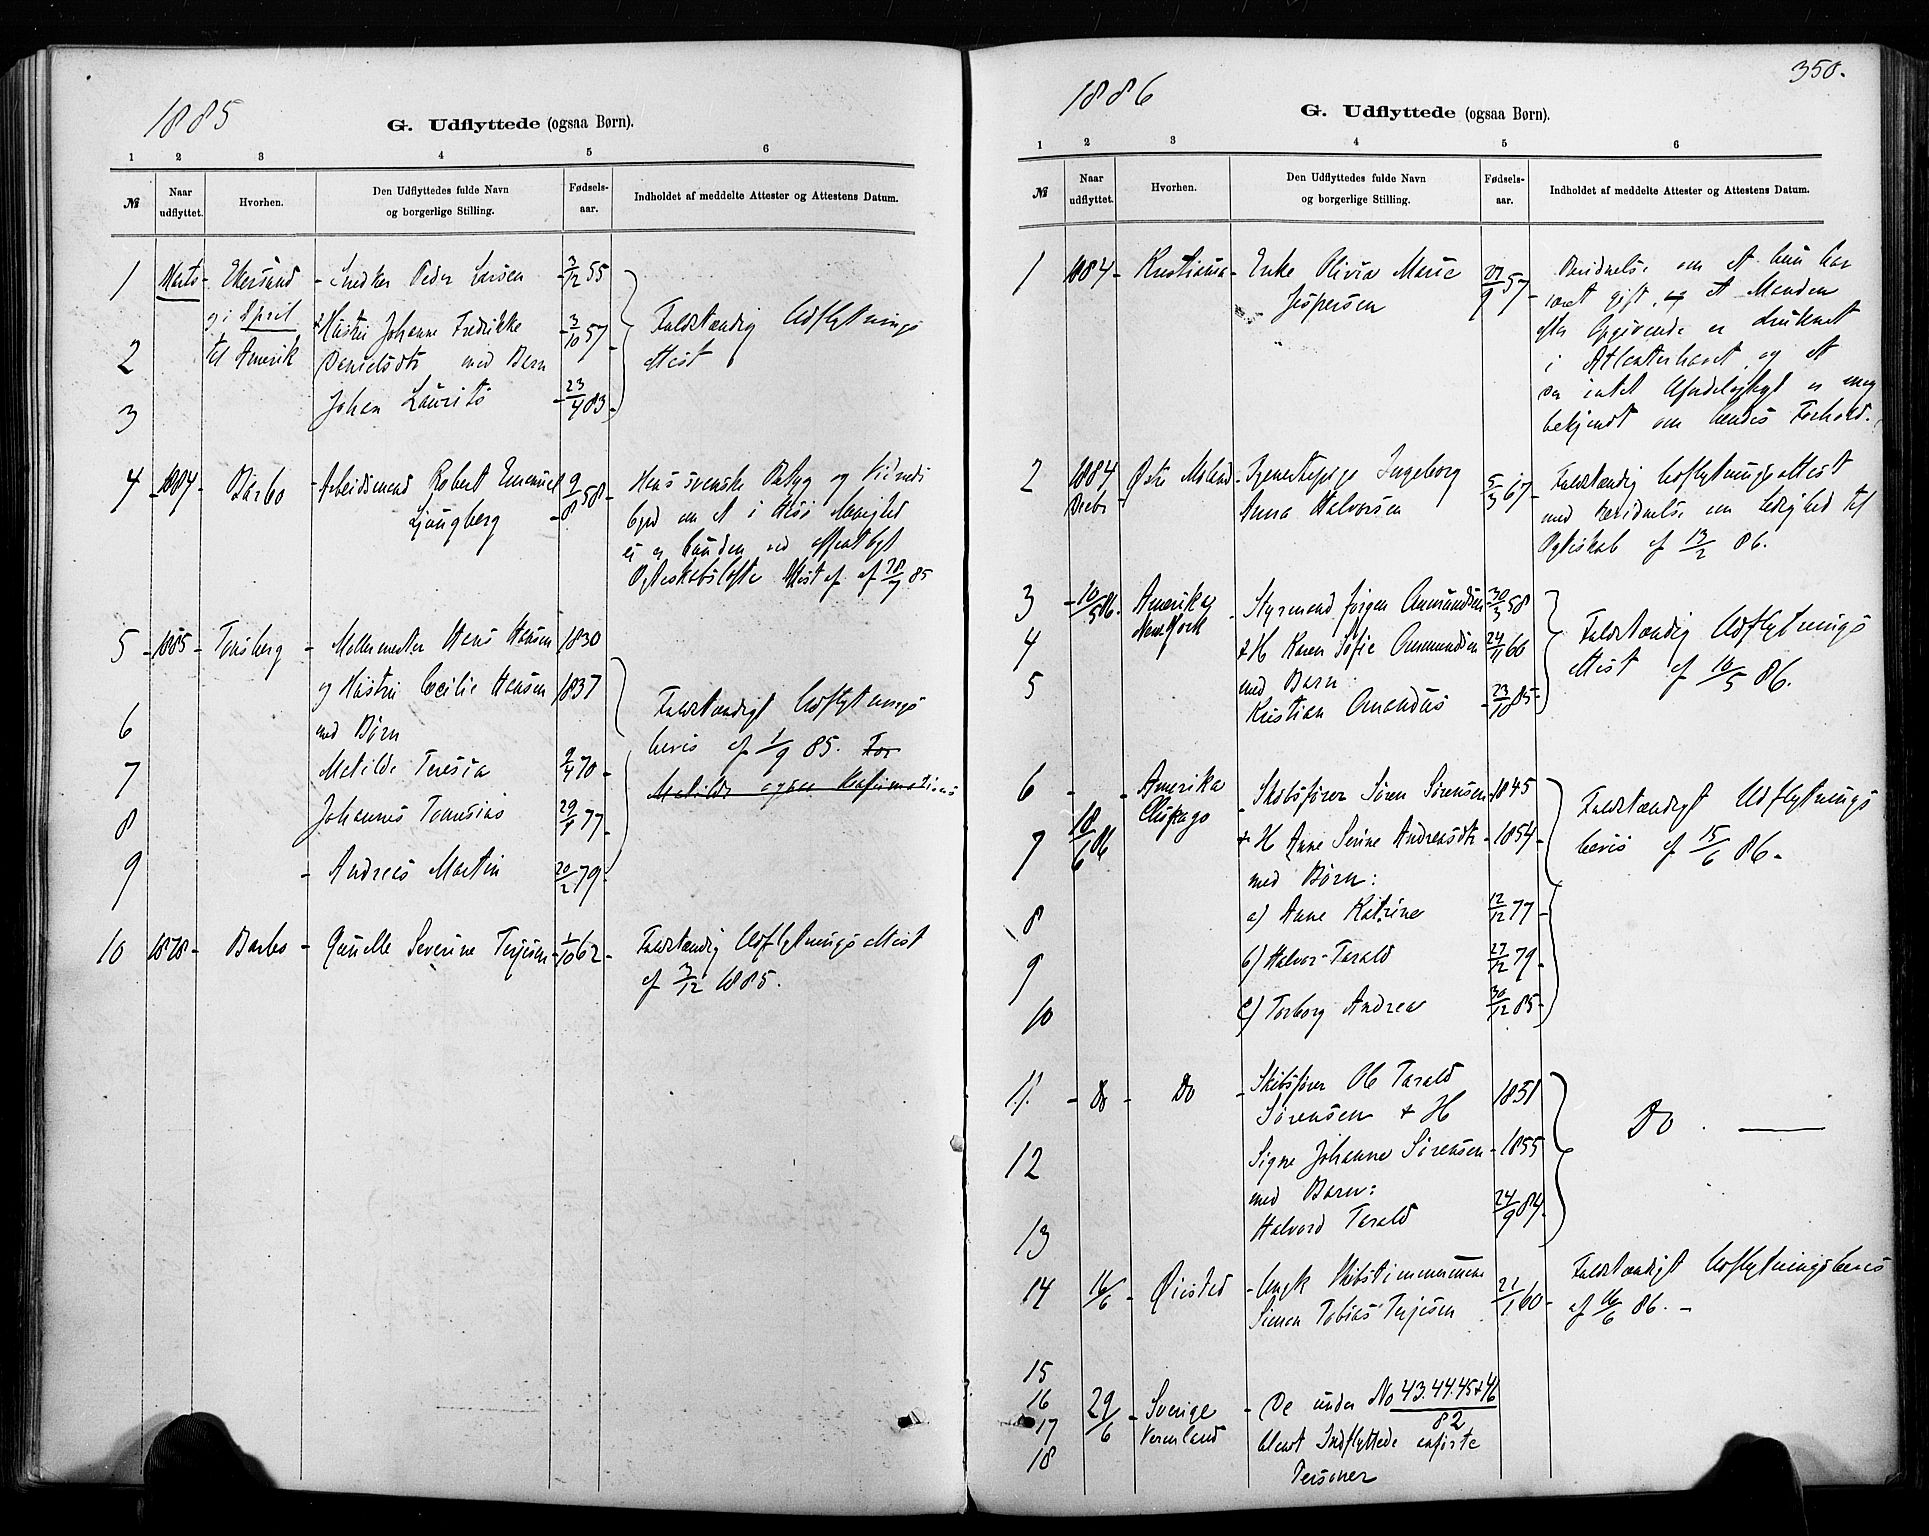 1885
G. Udflyttede (ogsaa Børn).
1 2 3 4 5 6
№ Naar udflyttet. Hvorhen. Den Udflyttedes fulde Navn og borgerlige Stilling. Fødsels-aar. Indholdet af meddelte Attester og Attestens Datum.
1 Marts - Ekersund - Snedker Peder Larsen - 3/12 55
g i April Hustru Johanne Fredrikke - 3/10 57 Fuldstændig Udflytnings
2 til Amerik Danielsdtr med Barn Attest
3 Johan Laurits - 23/4 83
4 - 1884 - Barbo - Arbeidsmand Robert Emanuel 9/8 58 - Hans svenske Betyg og Vidnes
Ljungberg - byrd om at i Aasi Menighed
ei er bunden ved offentligt
Egteskabsløfte Attest af 28/7 85
5 - 1885 - Tønsberg - Møllemester Hans Hansen 1830
og Hustru Cecilie Hansen 1837
6 med Børn Fuldstændigt Udflytnings
7 Matilde Teresia 9/4 70 - bevis af 1/9 85. For
8 Johannes Tomesius 29/4 77 Matilde ogsaa Konfirmations
9 - Andreas Martin 20/2 79 -
10 1878 - Barbo - Gunille Severine Terjesen - 1/10 62 - Fuldstændig Udflytnings Attest
af 3/12 1885.
350.
1886
G. Udflyttede (ogsaa Børn).
1 2 3 4 5 6
№ Naar udflyttet. Hvorhen. Den Udflyttedes fulde Navn og borgerlige Stilling. Fødsels-aar. Indholdet af meddelte Attester og Attestens Datum.
1 1884 - Kristiania - Enke Olivia Marie 27/9 57 - Bevidnelse om at hun har
Jespersen været gift, og at Manden
efter Opgivende er druknet
i Atlanterhavet, og at
der intet Ufordelagtigt er mig
bekjendt om hendes Forhold.
2 1884 Østre Moland - Tjenestepige Ingeborg 5/3 67 - Fuldstændig Udflytnings Attest
Decbr Anna Halvorsen med Bevidnelse om Ledighed til
Egteskab af 13/2 86.
3 - 10/5 86. Amerika - Styrmand Jørgen Omundsen 30/3 58
4 New York + H Karen Sofie Ommundsen 24/11 60 Fuldstændig Udflytnings
5 med Barn: Attest af 10/5 86.
Kristian Omandus - 23/10 85 -
6 - - Amerika - Skibsfører Søren Sørensen - 1845 Fuldstændigt Udflytnings
7 18/6 86 Chikago + H Anne Serine Andreasdtr - 1854 - bevis af 15/6 86.
med Børn:
8 a) Anne Katrine 12/12 77 -
9 b) Halvor Tarald 27/12 79 -
10 c) Torborg Andrea 30/12 85 -
11. - Do - Do - Skibsfører Ole Tarald 1851
Sørensen + H Do. ——
12 Signe Johanne Sørensen - 1855
med Barn:
13 Halvord Tarald 24/9 84.
14 16/6 - Øiested - Ungk Skibstimmermand 21/1 60 - Fuldstændigt Udflytningsbevis
Simon Tobias Terjesen af 16/6 86. -
15
16 29/6 - Sverige - De under No 43.44.45+46
17 Vermland 82
18 blant Indflyttede anførte
Personer